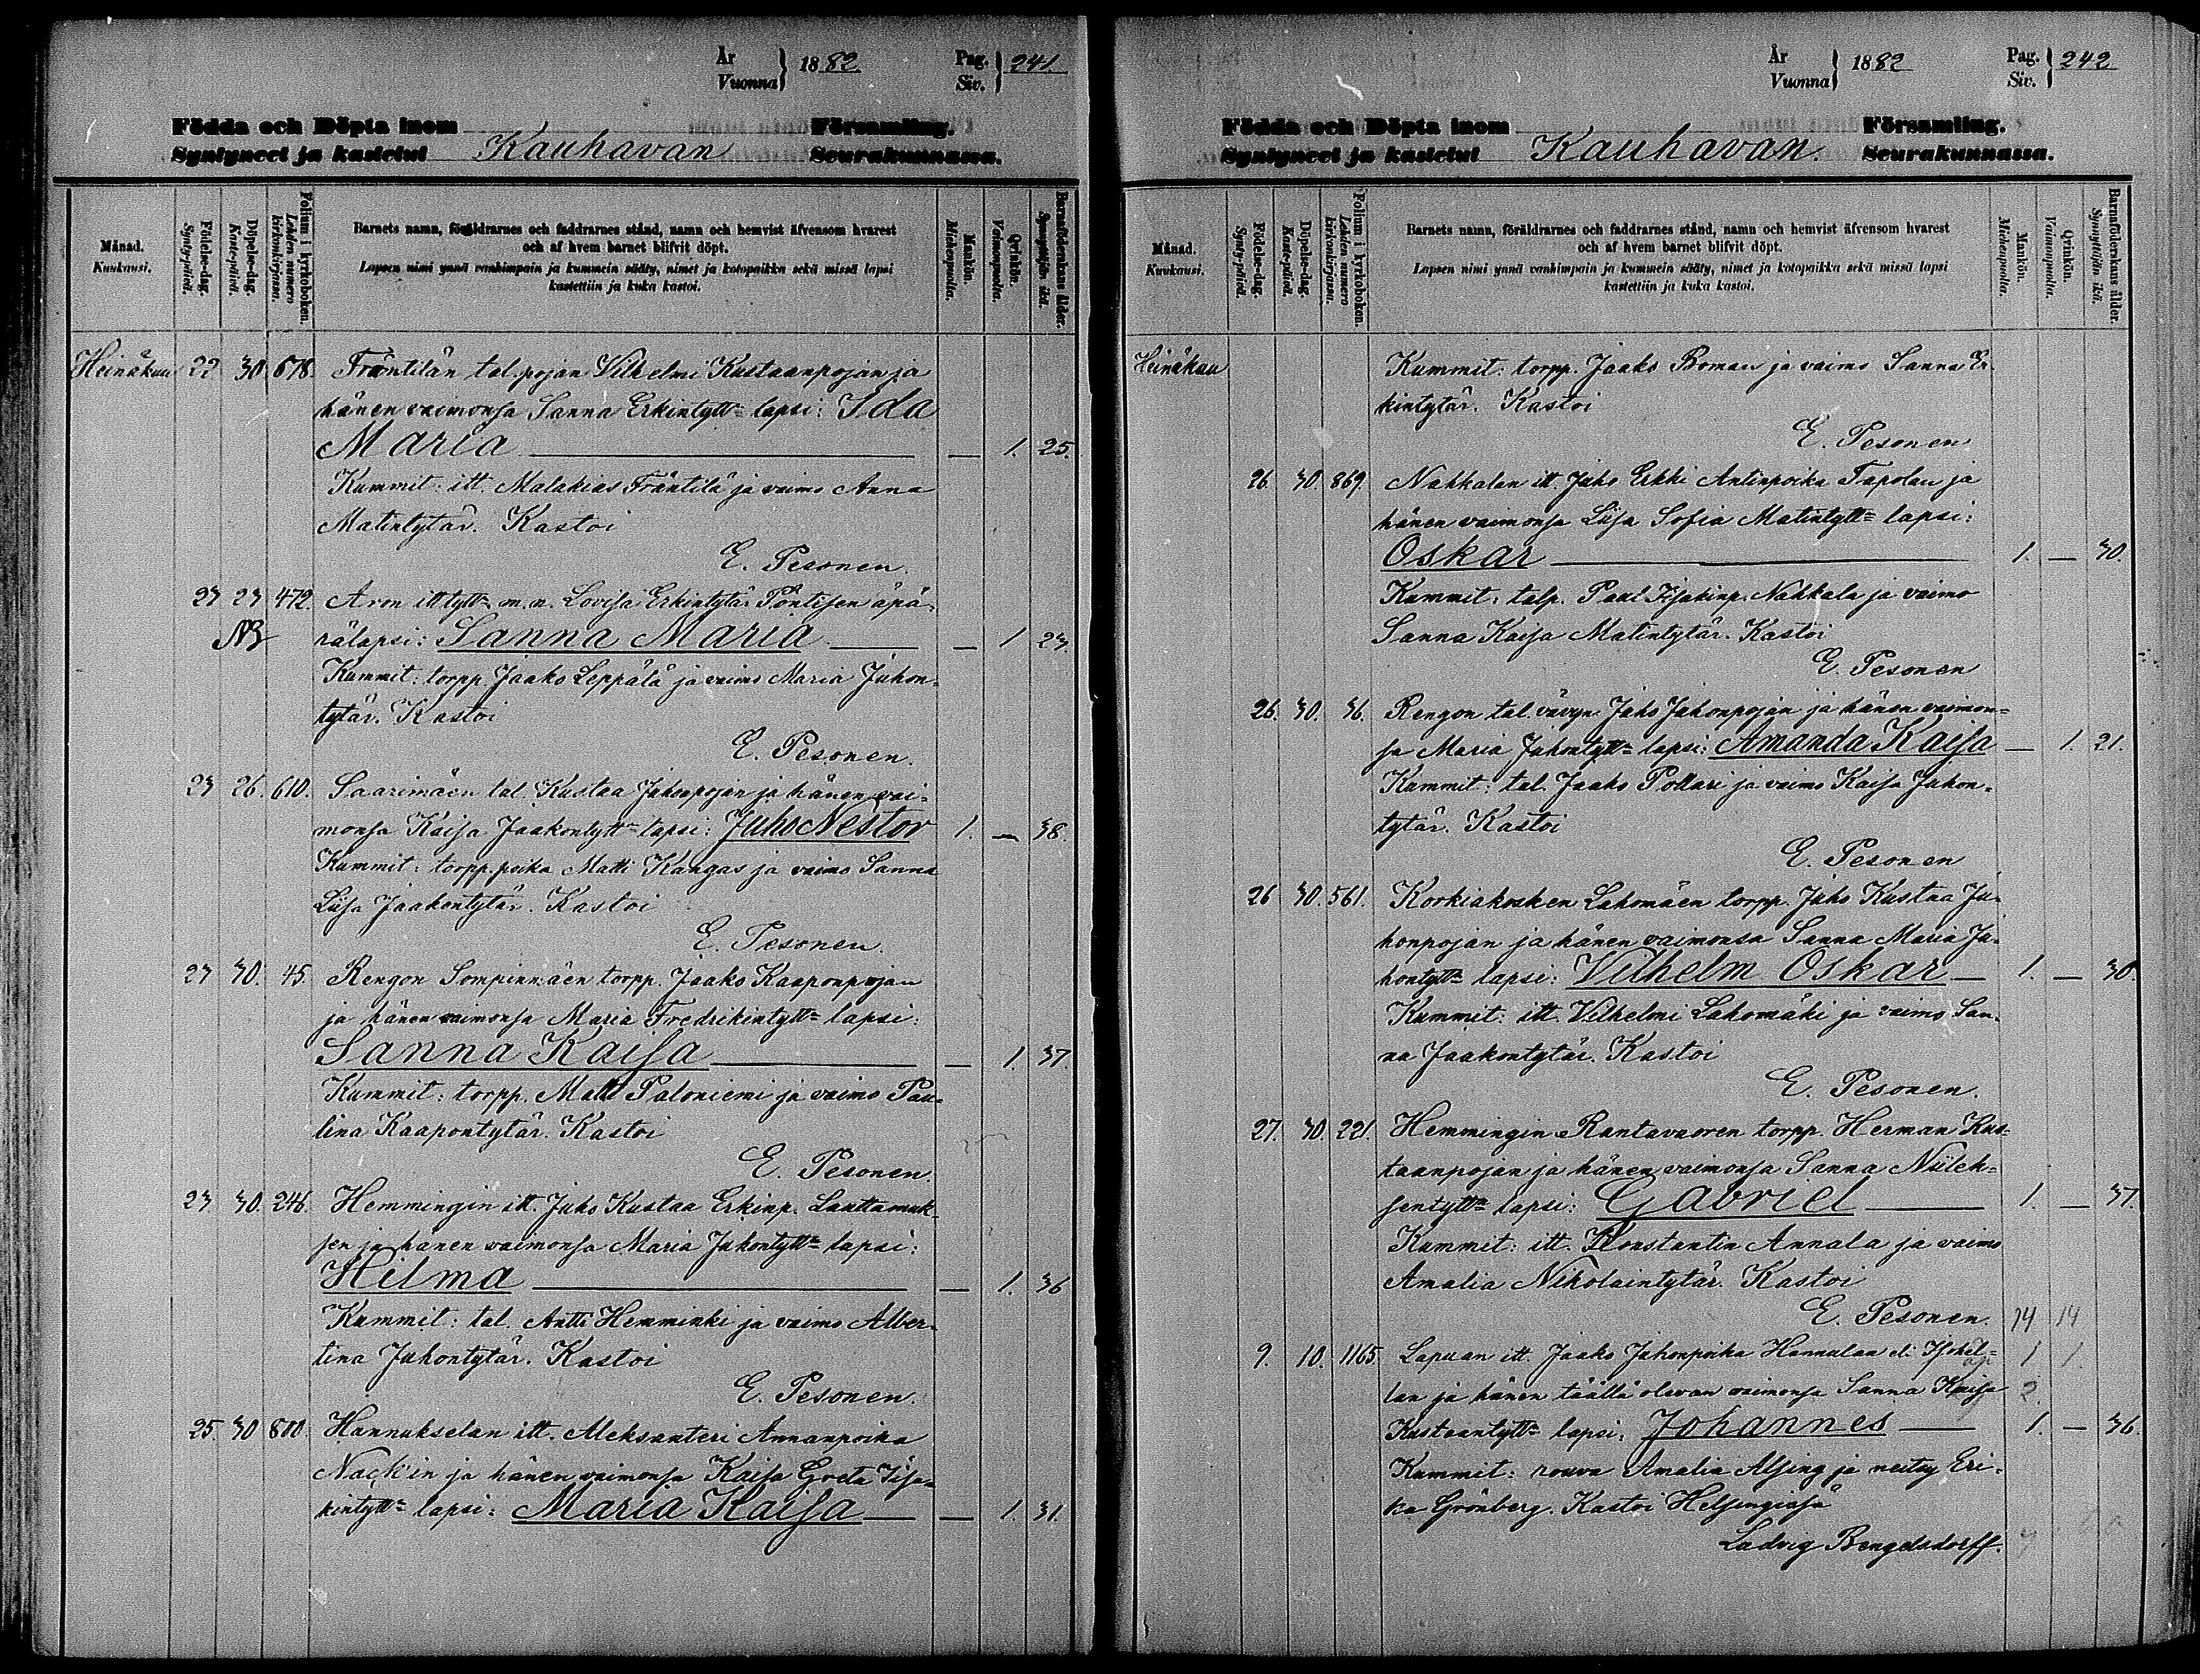 År
Vuonna } 1882.
Pag.
Siv. } 241.
Födda och Döpta inom Församling.
Syntyneet ja kastetut Kauhavan Seurakunnassa.
Månad.
Kuukausi.
Födelse-dag.
Synty-päivä.
Döpelse-dag.
Kaste-päivä.
Folium i kyrkoboken.
Lehden numero kirkonkirjassa.
Barnets namn, föräldrarnes och faddrarnes stånd, namn och hemvist äfvensom hvarest
och af hvem barnet blifvit döpt.
Lapsen nimi ynnä vanhimpain ja kummein sääty, nimet ja kotopaikka sekä missä lapsi
kastettiin ja kuka kastoi.
Mankön.
Miehenpuolta.
Qvinkön.
Vaimonpuolta.
Barnaföderskans ålder.
Synnyttäjän ikä.
Heinäkuu 22 30 678. Fräntilän tal. pojan Vilhelmi Kustaanpojan ja
hänen vaimonsa Sanna Erkintytt= lapsi: Ida
Maria — 1. 25.
Kummit: itt. Malakias Fräntilä ja vaimo Anna
Matintytär. Kastoi
E. Pesonen.
23 23 472. Aron itt tytt= m. n. Lovisa Erkintytär Pöntisen äpä-
NB rälapsi: Sanna Maria — 1 23.
Kummit: torpp. Jaako Leppälä ja vaimo Maria Juhon-
tytär. Kastoi
E. Pesonen.
23 26. 610. Saarimäen tal. Kustaa Juhonpojan ja hänen vai-
monsa Kaisa Jaakontytt= lapsi: Juho Nestor 1. — 38.
Kummit: torpp. poika Matti Kangas ja vaimo Sanna
Liisa Jaakontytär. Kastoi
E. Pesonen.
23 30. 45. Rengon Sompinmäen torpp. Jaako Kaaponpojan
ja hänen vaimonsa Maria Fredrikintytt= lapsi:
Sanna Kaisa — 1. 37.
Kummit: torpp. Matti Paloniemi ja vaimo Pau-
lina Kaapontytär. Kastoi
E. Pesonen.
23. 30. 246. Hemmingin itt. Juho Kustaa Erkinp. Lauttamuk-
sen ja hänen vaimonsa Maria Juhontytt= lapsi:
Hilma — 1. 36
Kummit: tal. Antti Hemminki ja vaimo Alber-
tina Juhontytär. Kastoi
E. Pesonen.
25. 30 800. Hannukselan itt. Aleksanteri Annanpoika
Nack'in ja hänen vaimonsa Kaisa Greta Iisa-
kintytt= lapsi: Maria Kaisa — 1. 31.
År
Vuonna } 1882
Pag.
Siv. } 242
Födda och Döpta inom Församling.
Syntyneet ja kastetut Kauhavan. Seurakunnassa.
Månad.
Kuukausi.
Födelse-dag.
Synty-päivä.
Döpelse-dag.
Kaste-päivä.
Folium i kyrkoboken.
Lehden numero kirkonkirjassa.
Barnets namn, föräldrarnes och faddrarnes stånd, namn och hemvist äfvensom hvarest
och af hvem barnet blifvit döpt.
Lapsen nimi ynnä vanhimpain ja kummein sääty, nimet ja kotopaikka sekä missä lapsi
kastettiin ja kuka kastoi.
Mankön.
Miehenpuolta.
Qvinkön.
Vaimonpuolta.
Barnaföderskans ålder.
Synnyttäjän ikä.
Heinäkuu Kummit: torpp. Jaako Boman ja vaimo Sanna Er-
kintytär. Kastoi
E. Pesonen
26. 30. 869. Nahkalan itt. Juho Erkki Antinpoika Tapolan ja
hänen vaimonsa Liisa Sofia Matintytt= lapsi:
Oskar 1. — 30.
Kummit: talp. Paul Iisakinp. Nahkala ja vaimo
Sanna Kaisa Matintytär. Kastoi
E. Pesonen
26. 30. 36. Rengon tal. vävyn Juho Juhonpojan ja hänen vaimon-
sa Maria Juhontytt= lapsi: Amanda Kaisa — 1. 21.
Kummit: tal. Jaako Pollari ja vaimo Kaisa Juhon-
tytär. Kastoi
E. Pesonen
26 30. 561. Korkiakosken Lahomäen torpp. Juho Kustaa Ju-
honpojan ja hänen vaimonsa Sanna Maria Ju-
hontytt= lapsi: Vilhelm Oskar 1. — 30.
Kummit: itt. Vilhelmi Lahomäki ja vaimo San-
na Jaakontytär. Kastoi
E. Pesonen.
27. 30. 221. Hemmingin Rantavuoren torpp. Herman Kus-
taanpojan ja hänen vaimonsa Sanna Niileh-
sentytt= lapsi: Gabriel 1. — 37.
Kummit: itt. Konstantin Annala ja vaimo
Amalia Nikolaintytär. Kastoi
E. Pesonen. 14 14
9. 10. 1165 Lapuan itt. Jaako Juhonpoika Hannulan el. 1 1.
lan ja hänen täällä olevan vaimonsa Sanna Kaisa 2.
Kustaantytt= lapsi: Johannes 1. — 36
Kummit: rouva Amalia Alsing ja neitsy Eri-
ka Grönberg. Kastoi Helsingissä
Ludvig Bengelsdorff.